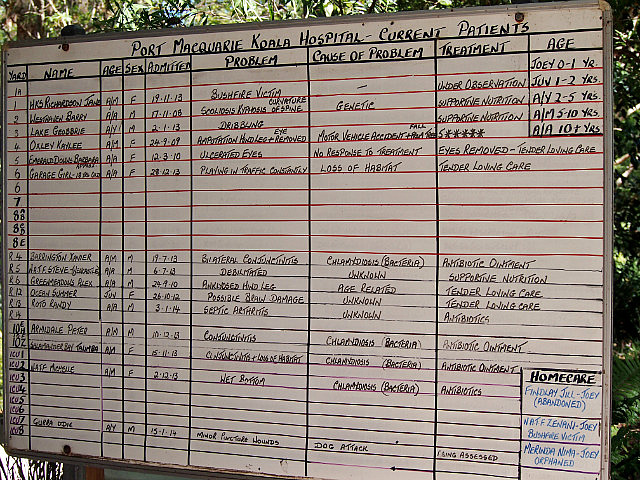 PORT MACQUARIE KOALA HOSPITAL - CURRENT PATIENTS
YARD NAME AGE SEX ADMITTED PROBLEM CAUSE OF PROBLEM TREATMENT AGE
JOEY 0-1 YR.
JUV 1-2 YRS.
A/Y 2-5 YRS.
A/M 5-10 YRS.
A/A 10+ YRS.
1A
1 HKS RICHARDSON JANE A/M F 19-11-13 BUSHFIRE VICTIM — UNDER OBSERVATION
2 WESTHAVEN BARRY A/A M 17-11-08 SCOLIOSIS KYPHOSIS CURVATURE OF SPINE GENETIC SUPPORTIVE NUTRITION
3 LAKE GEOBBRIE A/Y M 2-1-13 DRIBBLING SUPPORTIVE NUTRITION
4 OXLEY KAYLEE A/M F 24-9-09 AMPUTATION HIND LEG + EYE REMOVED MOTOR VEHICLE ACCIDENT + FALL FROM TREE S******
5 EMERALD DOWNS BARBARA A/A F 12-3-10 ULCERATED EYES NO RESPONSE TO TREATMENT EYES REMOVED - TENDER LOVING CARE
6 GARAGE GIRL A/A F 28-12-13 PLAYING IN TRAFFIC CONSTANTLY LOSS OF HABITAT TENDER LOVING CARE
6
7
8A
8B
8E
R4 BARRINGTON XAVIER A/M M 19-7-13 BILATERAL CONJUNCTIVITIS CHLAMYDIOSIS (BACTERIA) ANTIBIOTIC OINTMENT
R5 NATF STEVE - NEWCASTLE A/A M 6-7-13 DEBILITATED UNKNOWN SUPPORTIVE NUTRITION
R6 GREENMEADOWS ALEX A/A M 24-9-10 ANKYLOSED HIND LEG AGE RELATED TENDER LOVING CARE
R12 OCEAN SUMMER JUV F 26-10-12 POSSIBLE BRAIN DAMAGE UNKNOWN TENDER LOVING CARE
R13 ROTO RANDY A/A M 3-1-14 SEPTIC ARTHRITIS UNKNOWN ANTIBIOTICS
R14
ARMIDALE PETER A/M M 10-12-13 CONJUNCTIVITIS CHLAMYDIOSIS (BACTERIA) ANTIBIOTIC OINTMENT
ICU1 SALAMANDER BAY A/M F 15-11-13 CONJUNCTIVITIS + LOSS OF HABITAT CHLAMYDIOSIS (BACTERIA) ANTIBIOTIC OINTMENT
ICU2 NATF A/M F 2-12-13 WET BOTTOM CHLAMYDIOSIS (BACTERIA) ANTIBIOTICS
ICU3
ICU5
ICU6
ICU7
ICU8 A/Y M 15-1-14 MINOR PUNCTURE WOUNDS DOG ATTACK BEING ASSESSED
HOMECARE
FINDLAY JILL - JOEY
(ABANDONED)
NATF ZENANI - JOEY
BUSHFIRE VICTIM
MERINDA NIMA - JOEY
ORPHANED